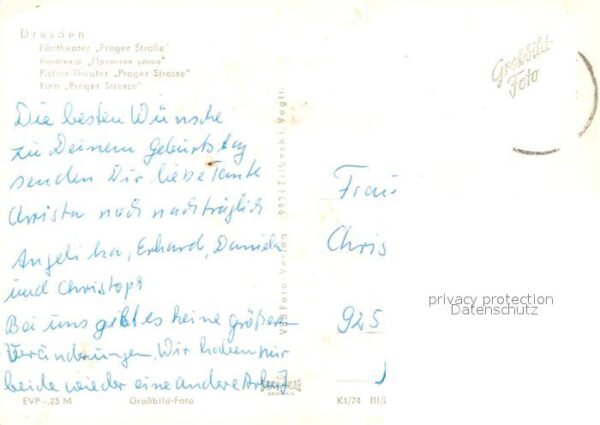 Dresden
Filmtheater „Prager Straße"
Кинотеатр „Пражская улица"
Picture-Theater „Prager Strasse"
Kino „Prager Strasse"
Großbild-
Foto
Die besten Wünsche
zu Deinem Geburtstag
senden Dir liebe Tante
Christa noch nachträglich
Angelika, Erhard, Daniela
und Christoph
Bei uns gibt es keine größeren
Veränderungen. Wir haben nur
beide wieder eine andere Arbeit
VEB Foto-Verlag 9934 Erlbach i. Vogtl.
Frau
Chris
925
privacy protection
Datenschutz
EVP -,25 M
Großbild-Foto
K1/74 III/